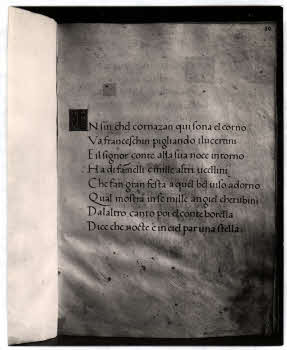 IN fin chel cornazan qui sona el corno
Va franceschin pigliando i lucerini
E il signor conte alla sua noce intorno
Ha di fanelli e mille altri ucellini
Che fan gran festa a quel bel uiso adorno
Qual mostra in se mille angiel cherubini
Dalaltro canto poi el conte borella
Dice che nocte e in ciel par una stella